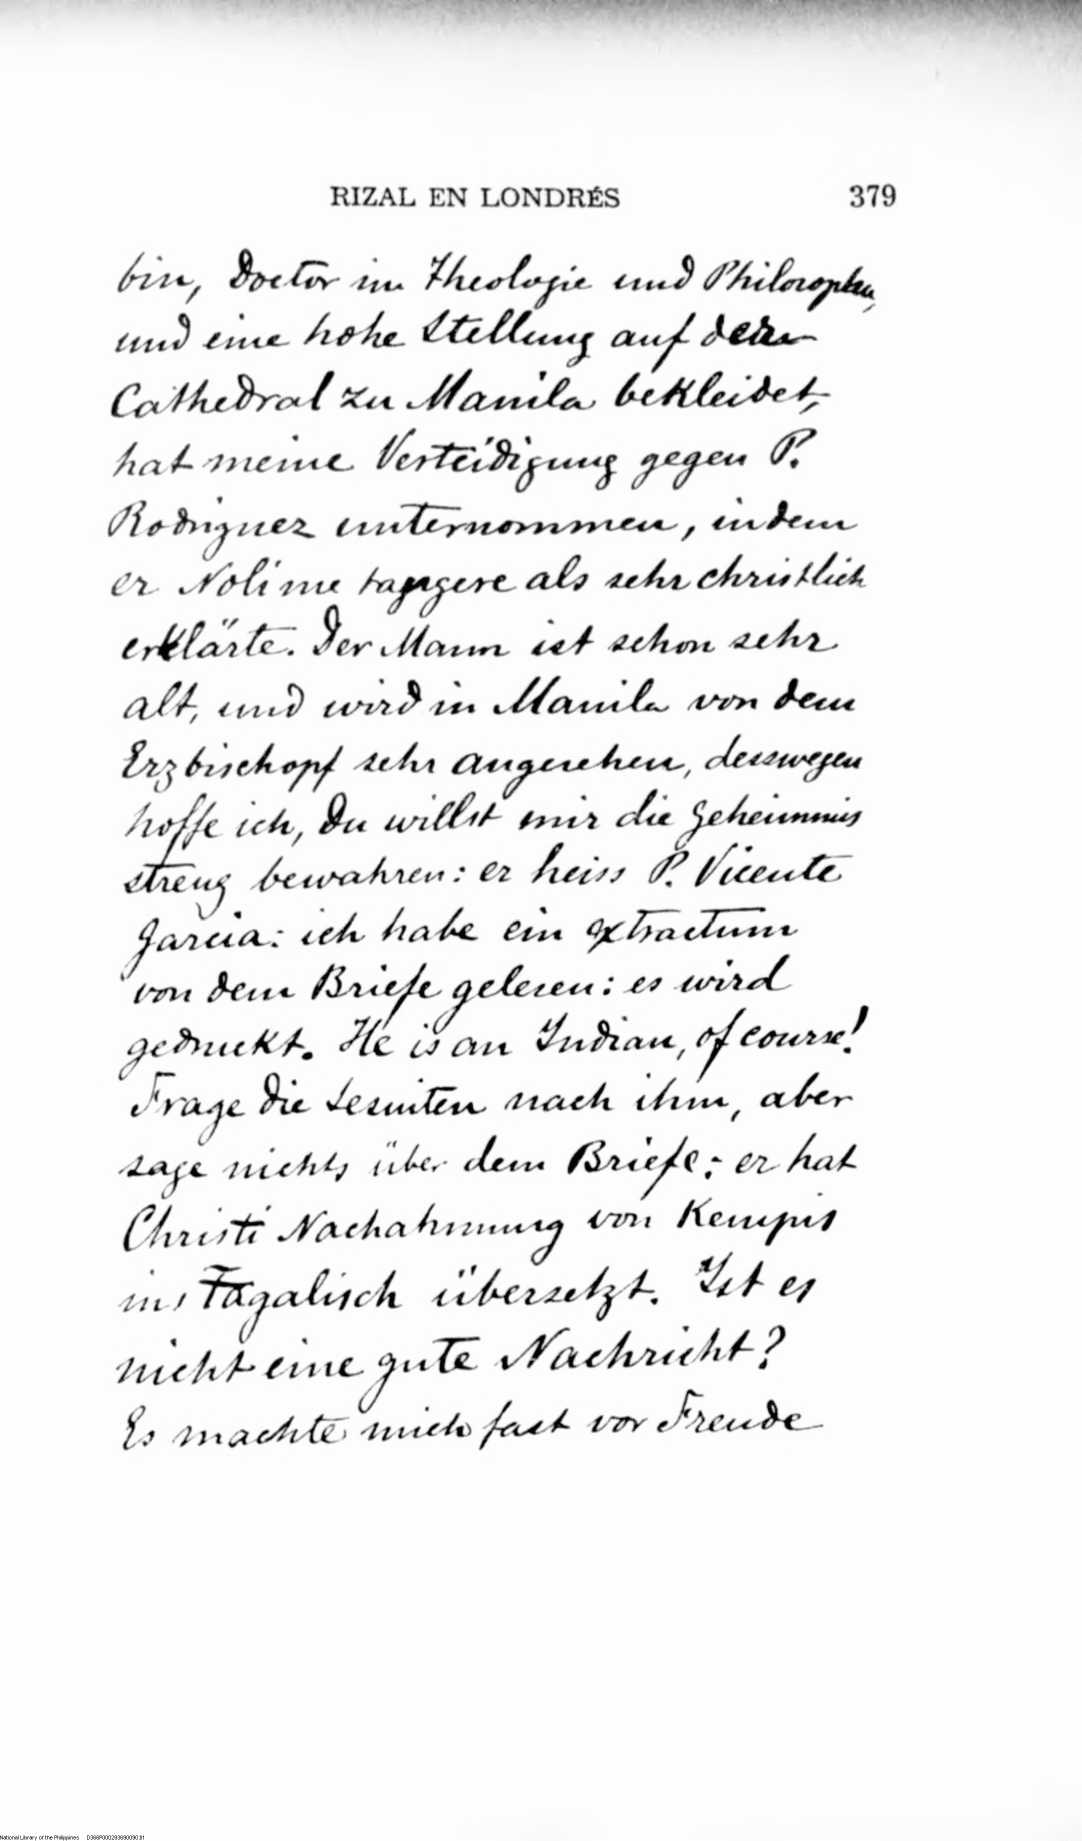 RIZAL EN LONDRÉS 379
bin, Doctor im Theologie und Philosophie,
und eine hohe Stellung auf der
Cathedral zu Manila bekleidet,
hat meine Verteidigung gegen P.
Rodriguez unternommen, indem
er Noli me tangere als sehr christlich
erklärte. Der Mann ist schon sehr
alt, und wird in Manila von dem
Erzbischopf sehr angesehen, desswegen
hoffe ich, Du willst mir die Geheimnis
streng bewahren: er heiss P. Vicente
Garcia: ich habe ein extractum
von dem Briefe gelesen: es wird
gedruckt. He is an Indian, of course!
Frage die Jesuiten nach ihm, aber
sage nichts über dem Briefe; er hat
Christi Nachahmung von Kempis
ins Tagalisch übersetzt. Ist es
nicht eine gute Nachricht?
Es machte mich fast vor Freude
National Library of the Philippines